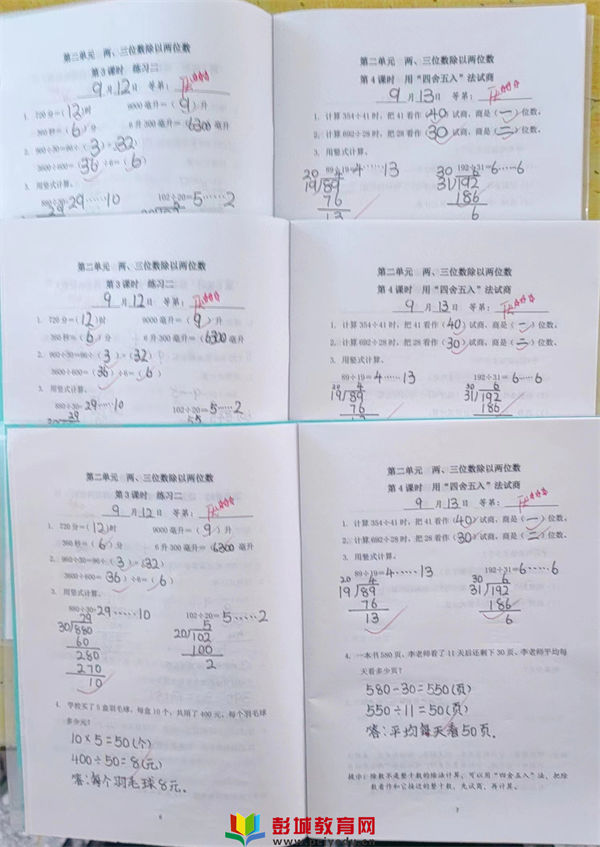 第二单元 两、三位数除以两位数
第3课时 练习二
9月12日 等第:
1. 720分=(12)时 9000毫升=(9)升
360秒=(6)分 6升300毫升=(6300)毫升
2. 960÷30=96÷(3)=(32)
3600÷600=(36)÷6=(6)
3. 用竖式计算。
880÷30=29……10 102÷20=5……2
29
第二单元 两、三位数除以两位数
第4课时 用“四舍五入”法试商
9月13日 等第:
1. 计算354÷41时,把41看作(40)试商,商是(一)位数。
2. 计算692÷28时,把28看作(30)试商,商是(二)位数。
3. 用竖式计算。
89÷19=4……13 192÷31=6……6
20 4 30 6
19/89 31/192
76 186
13 6
第二单元 两、三位数除以两位数
第3课时 练习二
9月12日 等第:
1. 720分=(12)时 9000毫升=(9)升
360秒=(6)分 6升300毫升=(6300)毫升
2. 960÷30=96÷(3)=(32)
3600÷600=(36)÷6=(6)
3. 用竖式计算。
880÷30=29……10 102÷20=5……2
29
第二单元 两、三位数除以两位数
第4课时 用“四舍五入”法试商
9月13日 等第:
1. 计算354÷41时,把41看作(40)试商,商是(一)位数。
2. 计算692÷28时,把28看作(30)试商,商是(二)位数。
3. 用竖式计算。
89÷19=4……13 192÷31=6……6
20 4 30 6
19/89 31/192
76 186
第二单元 两、三位数除以两位数
第3课时 练习二
9月12日 等第:
1. 720分=(12)时 9000毫升=(9)升
360秒=(6)分 6升300毫升=(6300)毫升
2. 960÷30=96÷(3)=(32)
3600÷600=(36)÷6=(6)
3. 用竖式计算。
880÷30=29……10 102÷20=5……2
29 5
30/880 20/102
60 100
280 2
270
10
4. 学校买了5盒羽毛球,每盒10个,共用了400元,每个羽毛球
多少元?
10×5=50(个)
400÷50=8(元)
答:每个羽毛球8元。
6
第二单元 两、三位数除以两位数
第4课时 用“四舍五入”法试商
9月13日 等第:
1. 计算354÷41时,把41看作(40)试商,商是(一)位数。
2. 计算692÷28时,把28看作(30)试商,商是(二)位数。
3. 用竖式计算。
89÷19=4……13 192÷31=6……6
20 4 30 6
19/89 31/192
76 186
13 6
4. 一本书580页,李老师看了11天后还剩下30页,李老师平均每
天看多少页?
580-30=550(页)
550÷11=50(页)
答:平均每天看50页。
提示:除数不是整十数的除法计算,可以用“四舍五入”法,把除
数看作和它接近的整十数,先试商,再计算。
7
彭城教育网